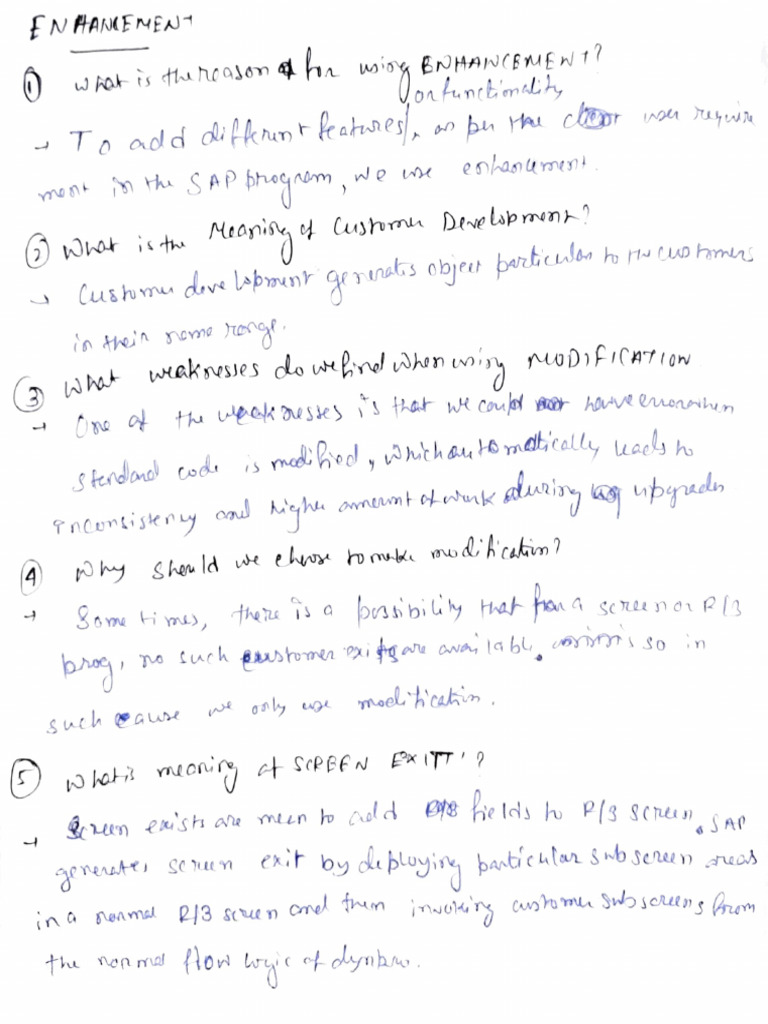 ENHANCEMENT
① What is the reason for using ENHANCEMENT?
or functionality
→ To add different features, as per the user require
ment in the SAP program, we use enhancement.
② What is the Meaning of Customer Development?
→ Customer development generates object particular to the customers
in their name range.
③ What weaknesses do we find when using MODIFICATION
→ One of the weaknesses is that we could have error when
standard code is modified, which automatically leads to
inconsistency and higher amount of work during upgrades
④ Why should we choose to make modification?
→ Some times, there is a possibility that for a screen or R/3
prog, no such customer exits are available. so in
such cause we only use modification.
⑤ What is meaning of SCREEN EXIT'?
→ Screen exists are meen to add fields to R/3 screen. SAP
generates screen exit by deploying particular subscreen areas
in a normal R/3 screen and then invoking customer subscreens from
the normal flow logic of dynpro.